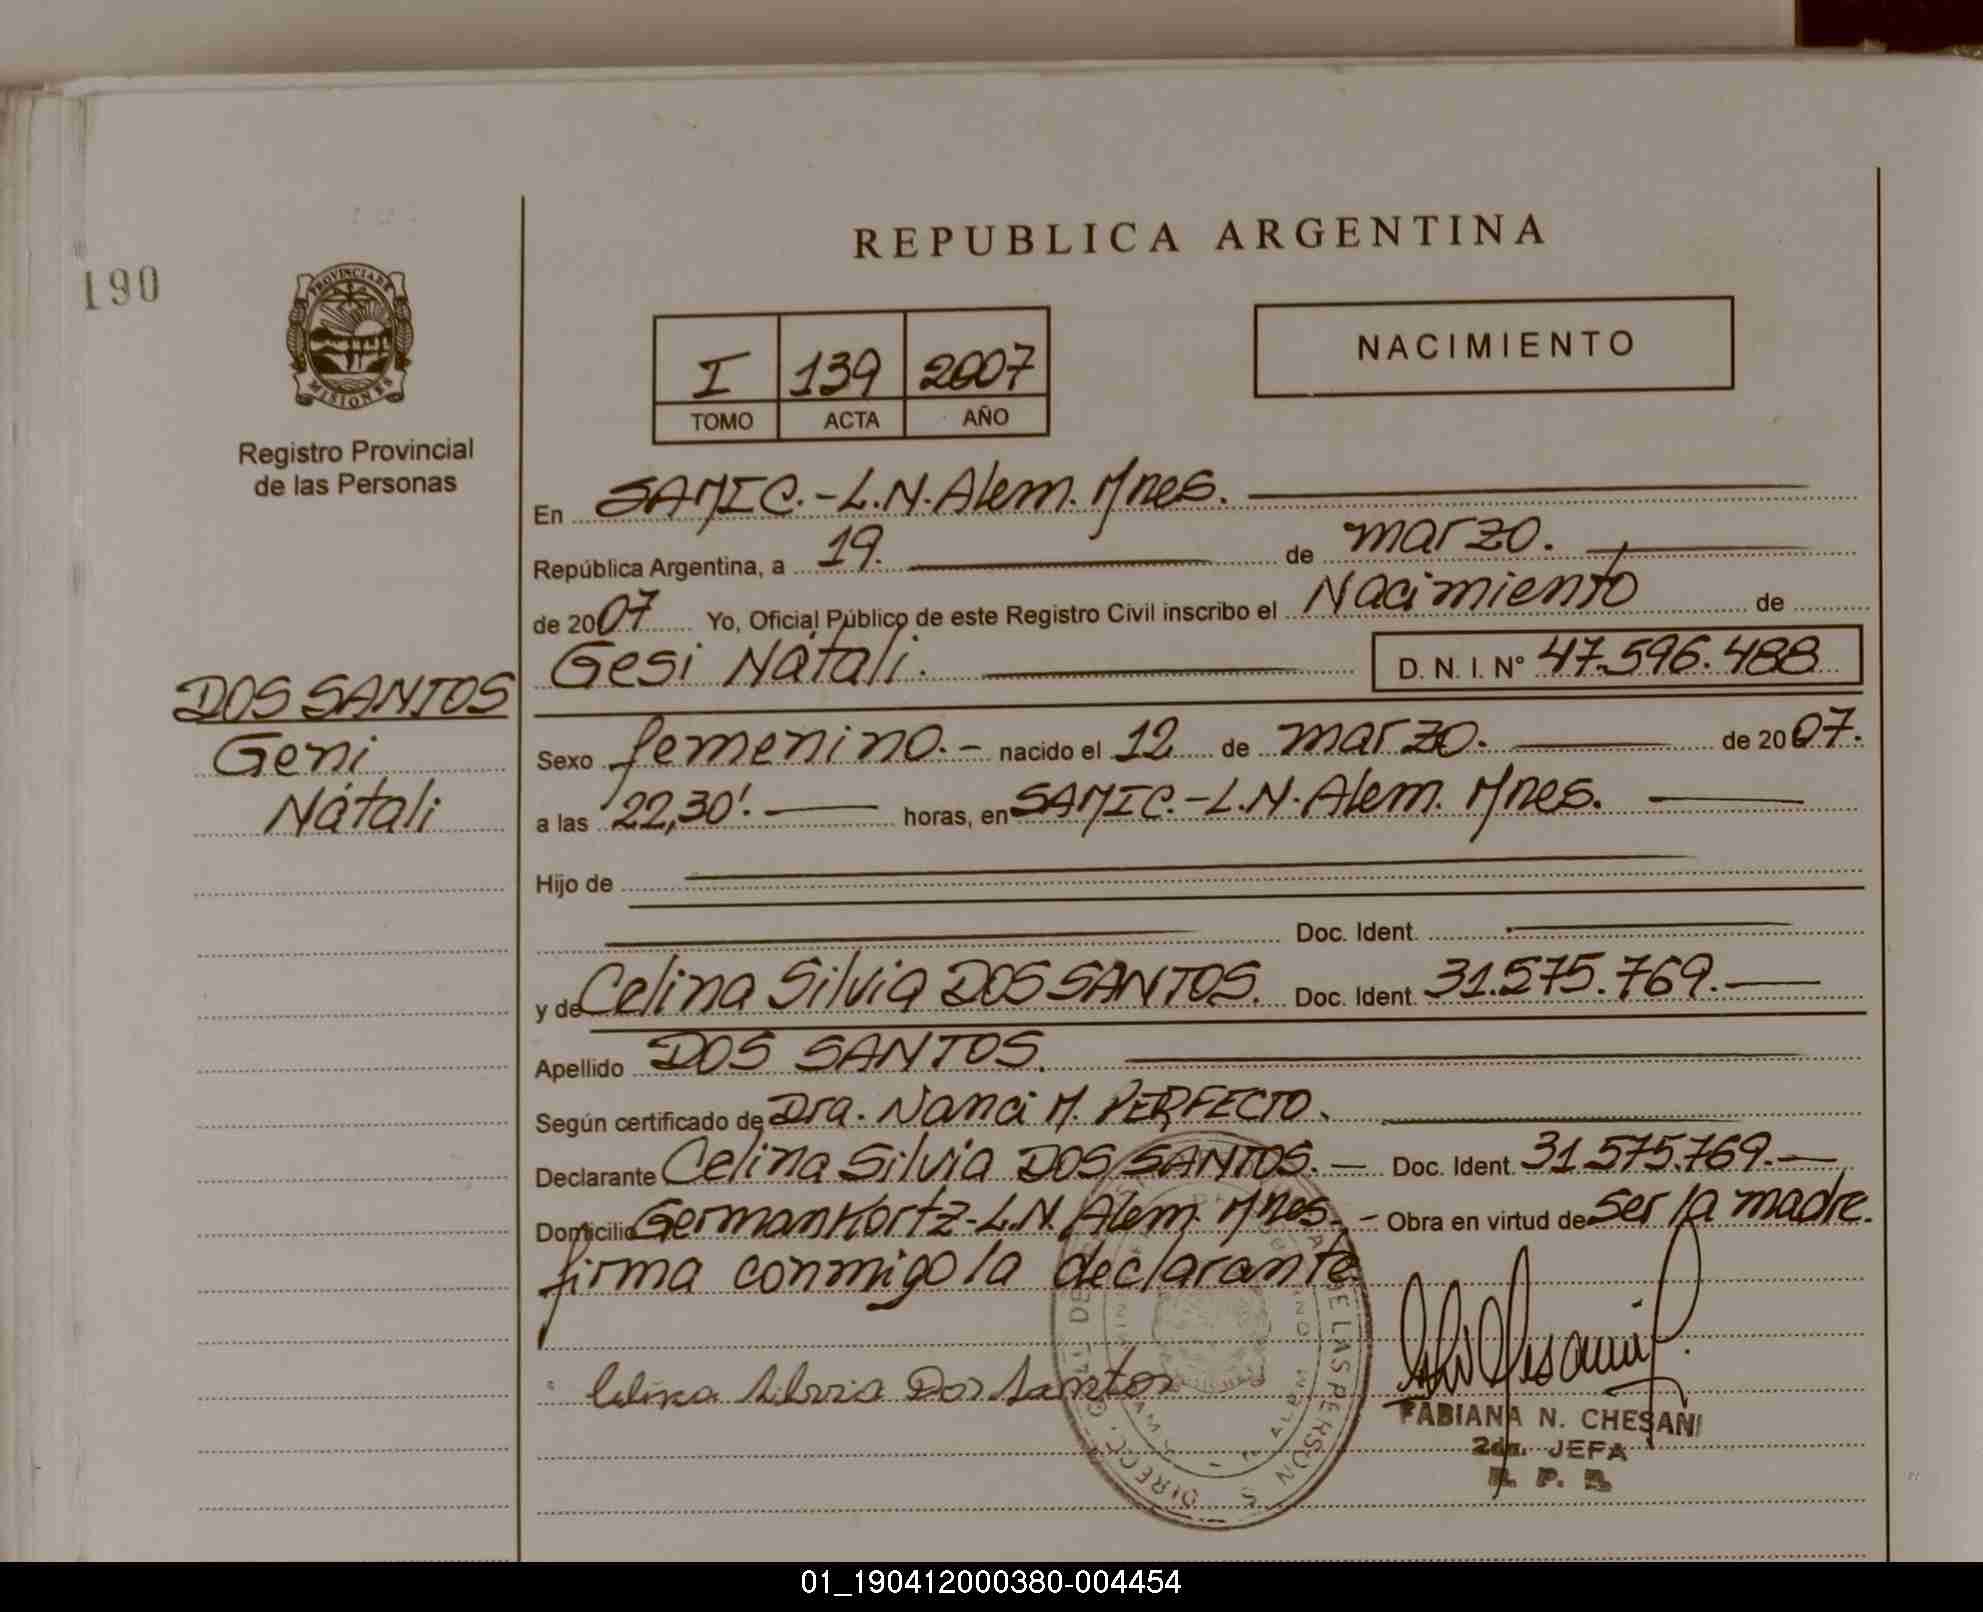 REPUBLICA ARGENTINA
190
PROVINCIA DE
MISIONES
Registro Provincial
de las Personas
I 139 2007
TOMO ACTA AÑO
NACIMIENTO
En SAMIC.-L.N.Alem. Mnes.
República Argentina, a 19. de marzo.
de 2007 Yo, Oficial Público de este Registro Civil inscribo el Nacimiento de
Gesi Nátali. D. N. I. N° 47.596.488
DOS SANTOS
Geni
Nátali
Sexo femenino.- nacido el 12 de marzo. de 2007.
a las 22,30'. horas, en SAMIC.-L.N.Alem. Mnes.
Hijo de
Doc. Ident.
y de Celina Silvia DOS SANTOS. Doc. Ident. 31.575.769.
Apellido DOS SANTOS.
Según certificado de Dra. Nanci M. PERFECTO.
Declarante Celina Silvia DOS SANTOS.- Doc. Ident. 31.575.769.-
Domicilio GermanKortz-L.N. Alem. Mnes.- Obra en virtud de ser la madre.
firma conmigo la declarante
Celina Silvia Dos Santos
FABIANA N. CHESANI
2da. JEFA
R. P. P.
01_190412000380-004454